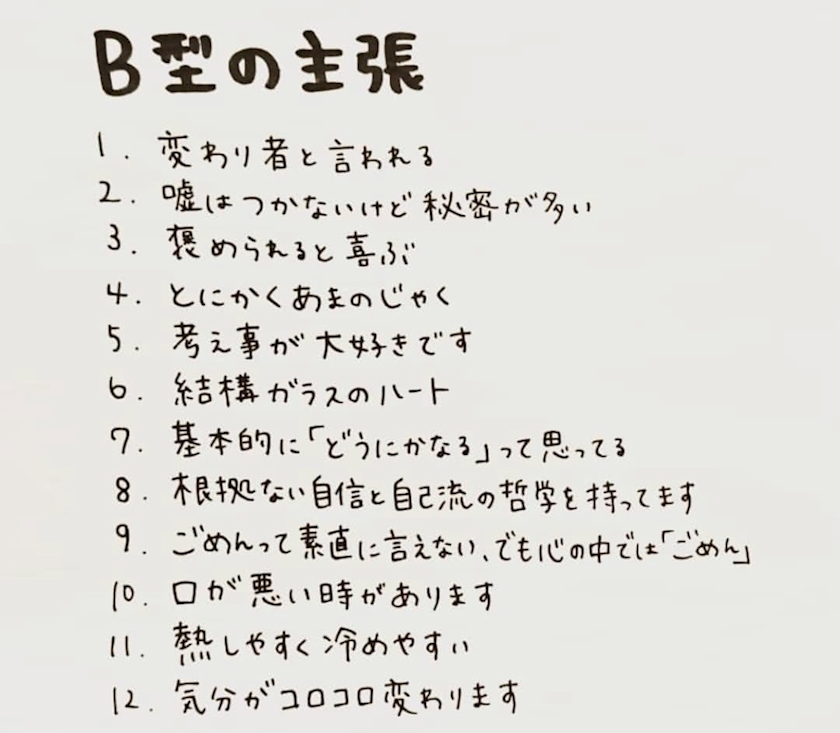 B型の主張
1. 変わり者と言われる
2. 嘘はつかないけど秘密が多い
3. 褒められると喜ぶ
4. とにかくあまのじゃく
5. 考え事が大好きです
6. 結構ガラスのハート
7. 基本的に「どうにかなる」って思ってる
8. 根拠ない自信と自己流の哲学を持ってます
9. ごめんって素直に言えない、でも心の中では「ごめん」
10. 口が悪い時があります
11. 熱しやすく冷めやすい
12. 気分がコロコロ変わります